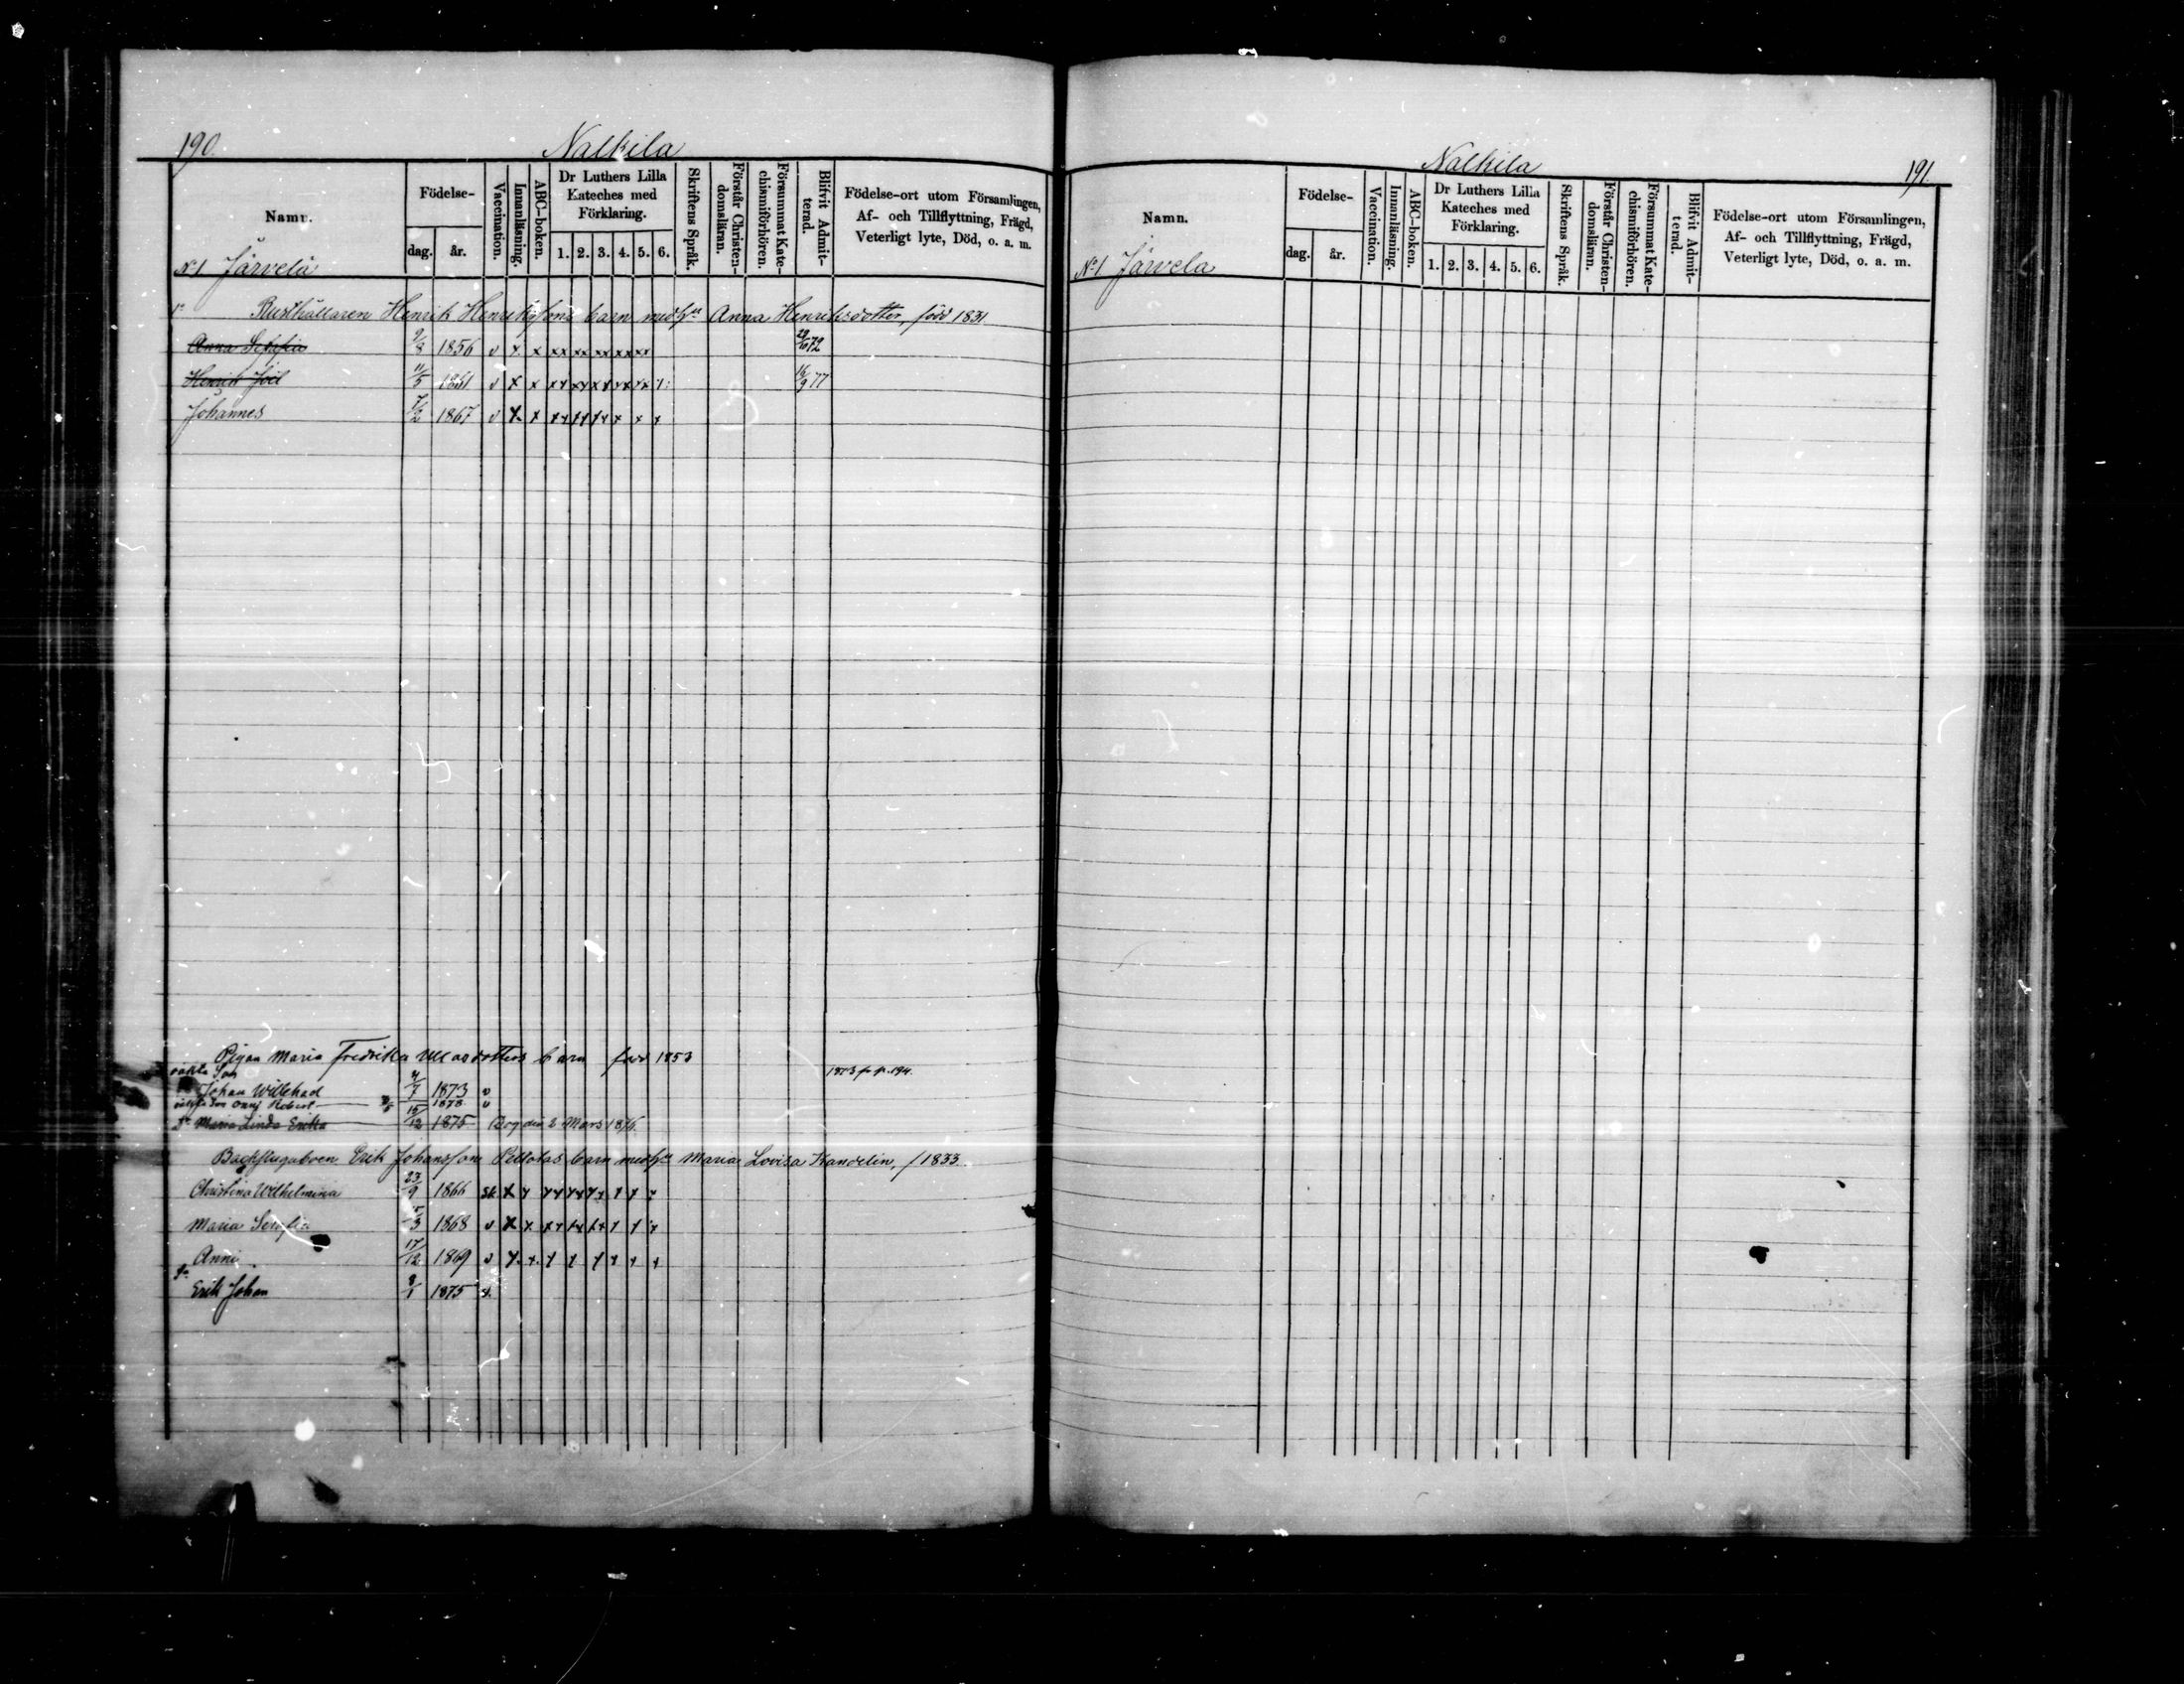 190. Nalkila
Namn.
Födelse-
dag. år.
Vaccination.
Innanläsning.
ABC-boken.
Dr Luthers Lilla
Kateches med
Förklaring.
1. 2. 3. 4. 5. 6.
Skriftens Språk.
Förstår Christen-
domsläran.
Försummat Kate-
chismiförhören.
Blifvit Admit-
terad.
Födelse-ort utom Församlingen,
Af- och Tillflyttning, Frägd,
Veterligt lyte, Död, o. a. m.
No 1 Järvelä
Rusthållaren Henrik Henrikssons barn med Anna Henriksdotter, född 1831
Anna Sofia 9/8 1856 v x x xx xx xx xx xx 72
Henrik Joel 11/5 1861 v x x xx xx xx xx xx 16/9 77
Johannes 7/2 1867 v x x xx xx xx x x x
Pigan Maria Fredrika barn född 1853
oäkta Son 1873 fr p. 194.
Johan Willehad 4/7 1873 v
oäkta Son Robert 1878 v
Maria Linda Erika 15/12 1875 Dog den 2 Mars 1876.
Erik Johanssons barn med Maria Lovisa Kandelin, f 1833
Christina Wilhelmina 23/9 1866 x x xx xx xx x x x
Maria Serafia 15/3 1868 v x x xx xx xx x x x
Anni 17/12 1869 v x x x x x x x x
Erik Johan 8/1 1875
Nalkila 191.
Namn.
Födelse-
dag. år.
Vaccination.
Innanläsning.
ABC-boken.
Dr Luthers Lilla
Kateches med
Förklaring.
1. 2. 3. 4. 5. 6.
Skriftens Språk.
Förstår Christen-
domsläran.
Försummat Kate-
chismiförhören.
Blifvit Admit-
terad.
Födelse-ort utom Församlingen,
Af- och Tillflyttning, Frägd,
Veterligt lyte, Död, o. a. m.
No 1 Järvela